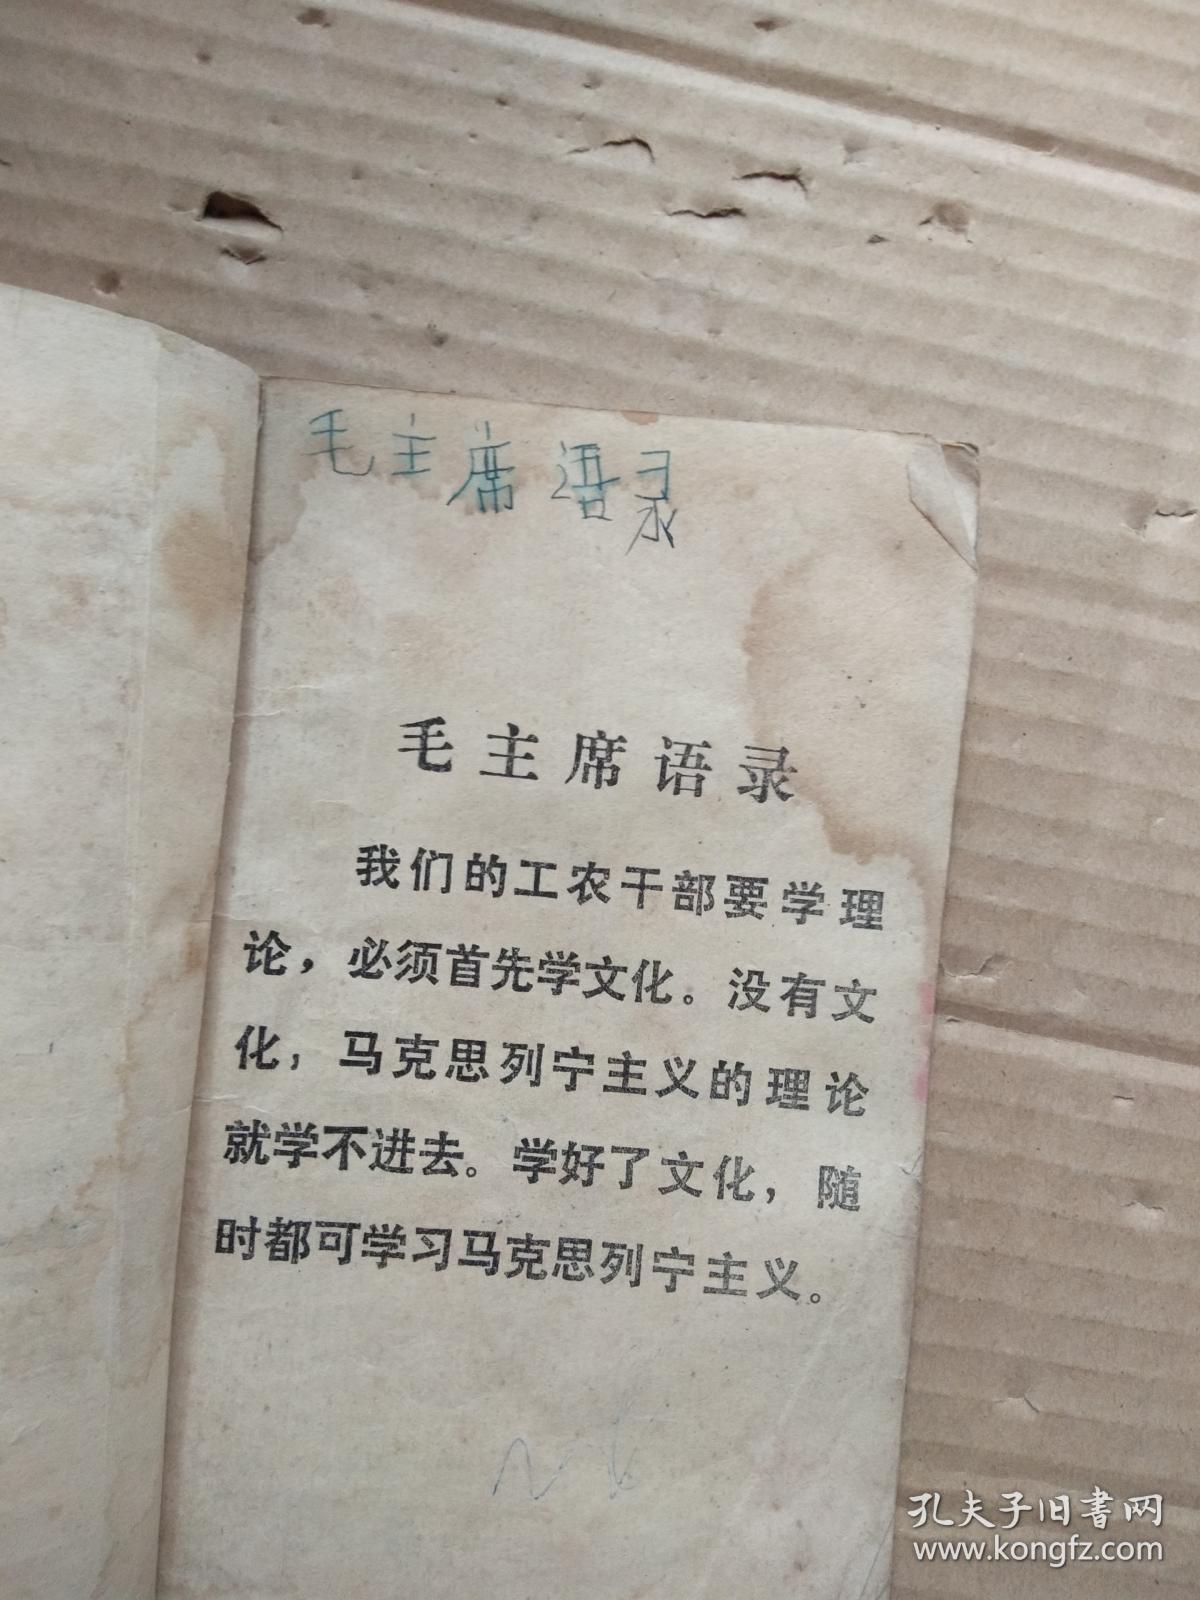 毛主席语录
毛主席语录
我们的工农干部要学理
论，必须首先学文化。没有文
化，马克思列宁主义的理论
就学不进去。学好了文化，随
时都可学习马克思列宁主义。
孔夫子旧书网
www.kongfz.com